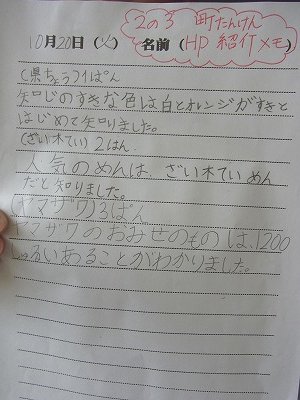 2の3 町たんけん
10月20日(火) 名前(HP紹介メモ)
(県ちょう)1ぱん
知じのすきな色は白とオレンジがすきと
はじめて知りました。
(ざい木てい)2はん
人気のめんは、ざい木ていめん
だと知りました。
(ヤマザワ)3ぱん
ヤマザワのおみせのものは、1200
しゅるいあることがわかりました。